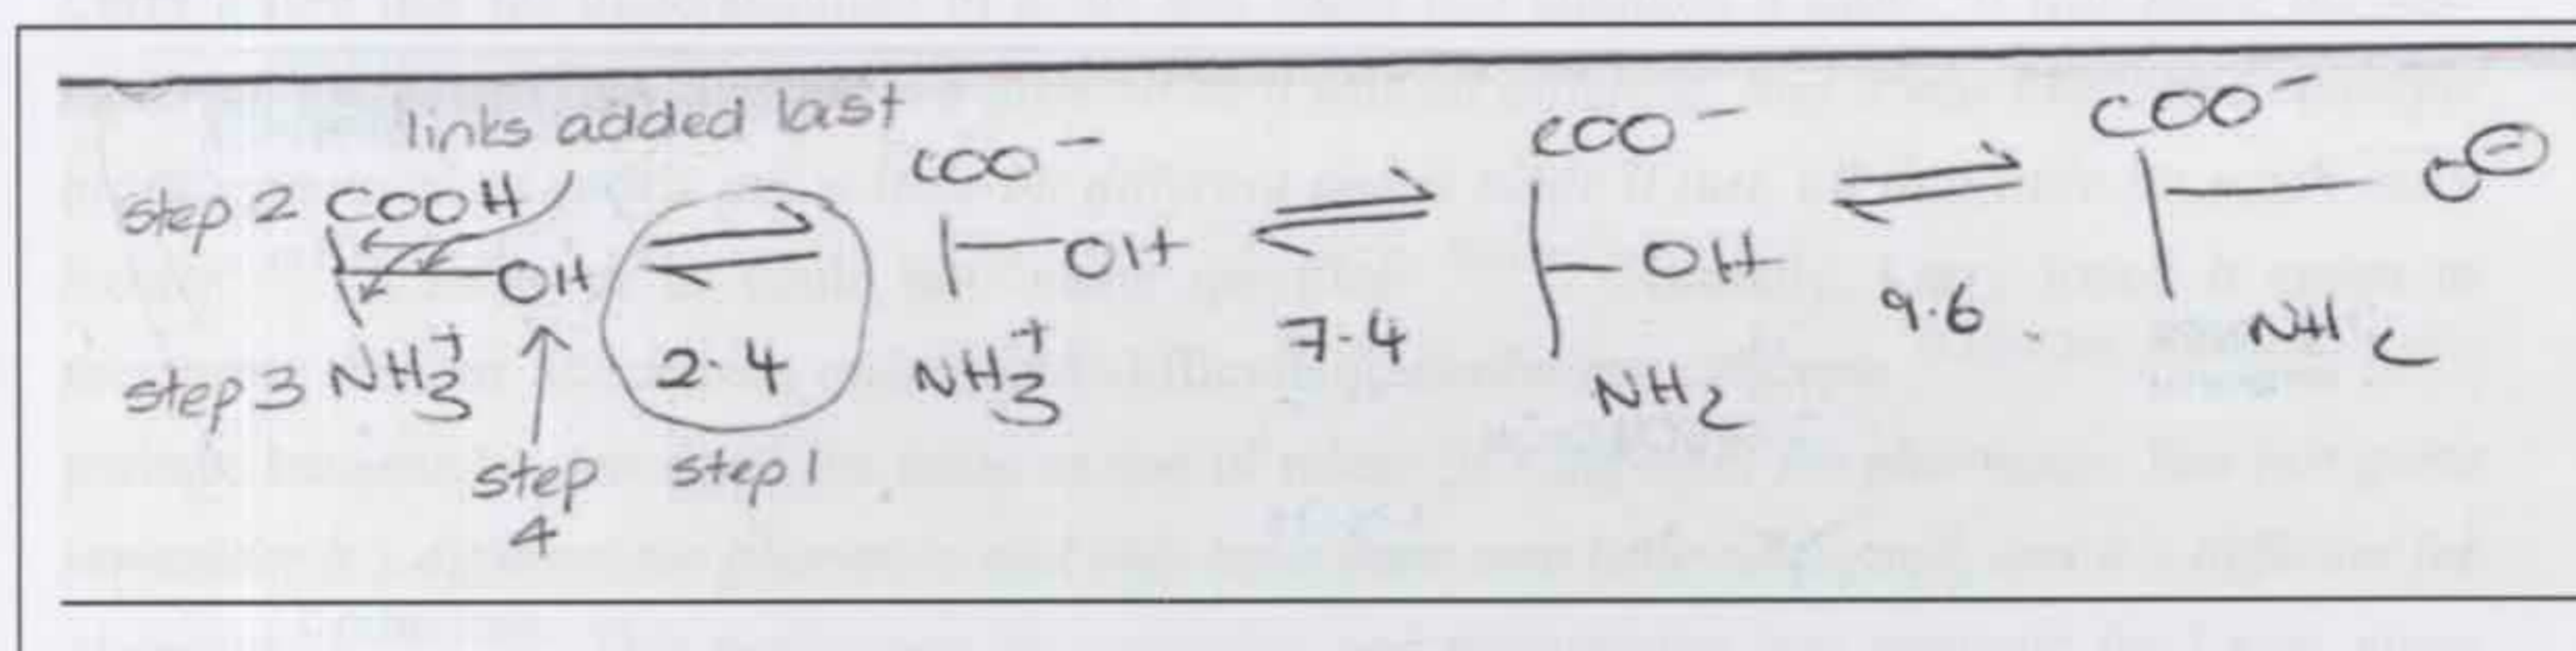 links added last
step 2 COOH
OH
step 3 NH3+
step 4
2.4
step 1
COO-
OH
NH3+
7.4
COO-
OH
NH2
9.6
COO-
O-
NH2